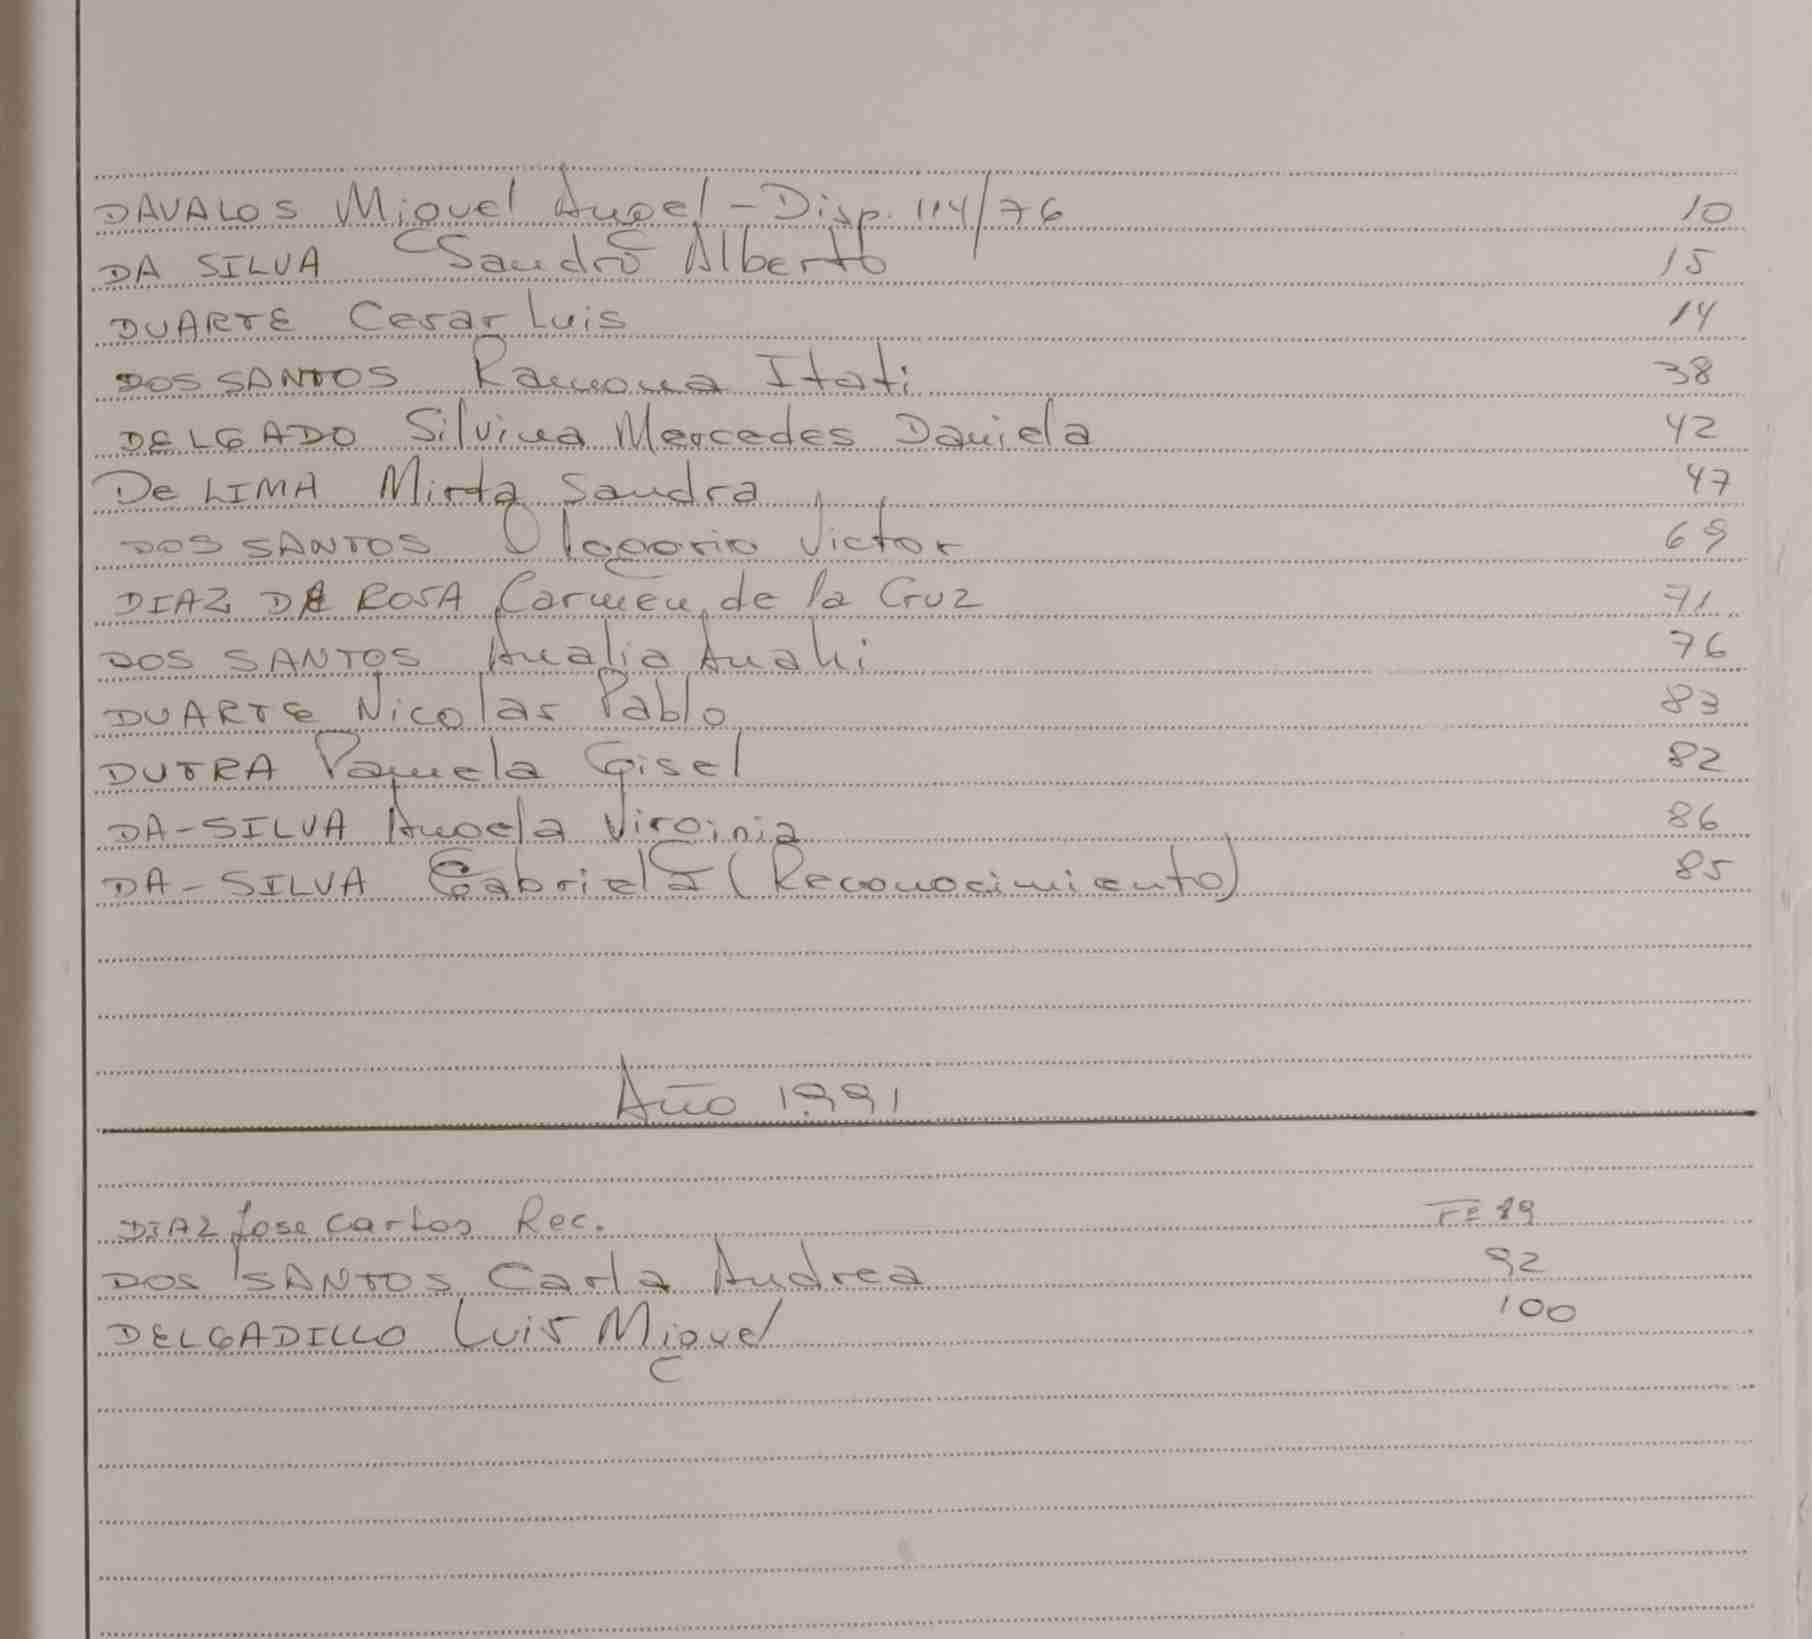 DAVALOS Miguel Angel - Disp. 114/76 10
DA SILVA Sandro Alberto 15
DUARTE Cesar Luis 14
DOS SANTOS Ramona Itati 38
DELGADO Silvina Mercedes Daniela 42
De LIMA Mirta Sandra 47
DOS SANTOS Olegorio Victor 69
DIAZ DE ROSA Carmen de la Cruz 71
DOS SANTOS Analia Anahi 76
DUARTE Nicolas Pablo 83
DUTRA Pamela Gisel 82
DA-SILVA Angela Virginia 86
DA-SILVA Gabriela (Reconocimiento) 85
Año 1991
DIAZ Jose Carlos Rec. Fº 89
DOS SANTOS Carla Andrea 92
DELGADILLO Luis Miguel 100